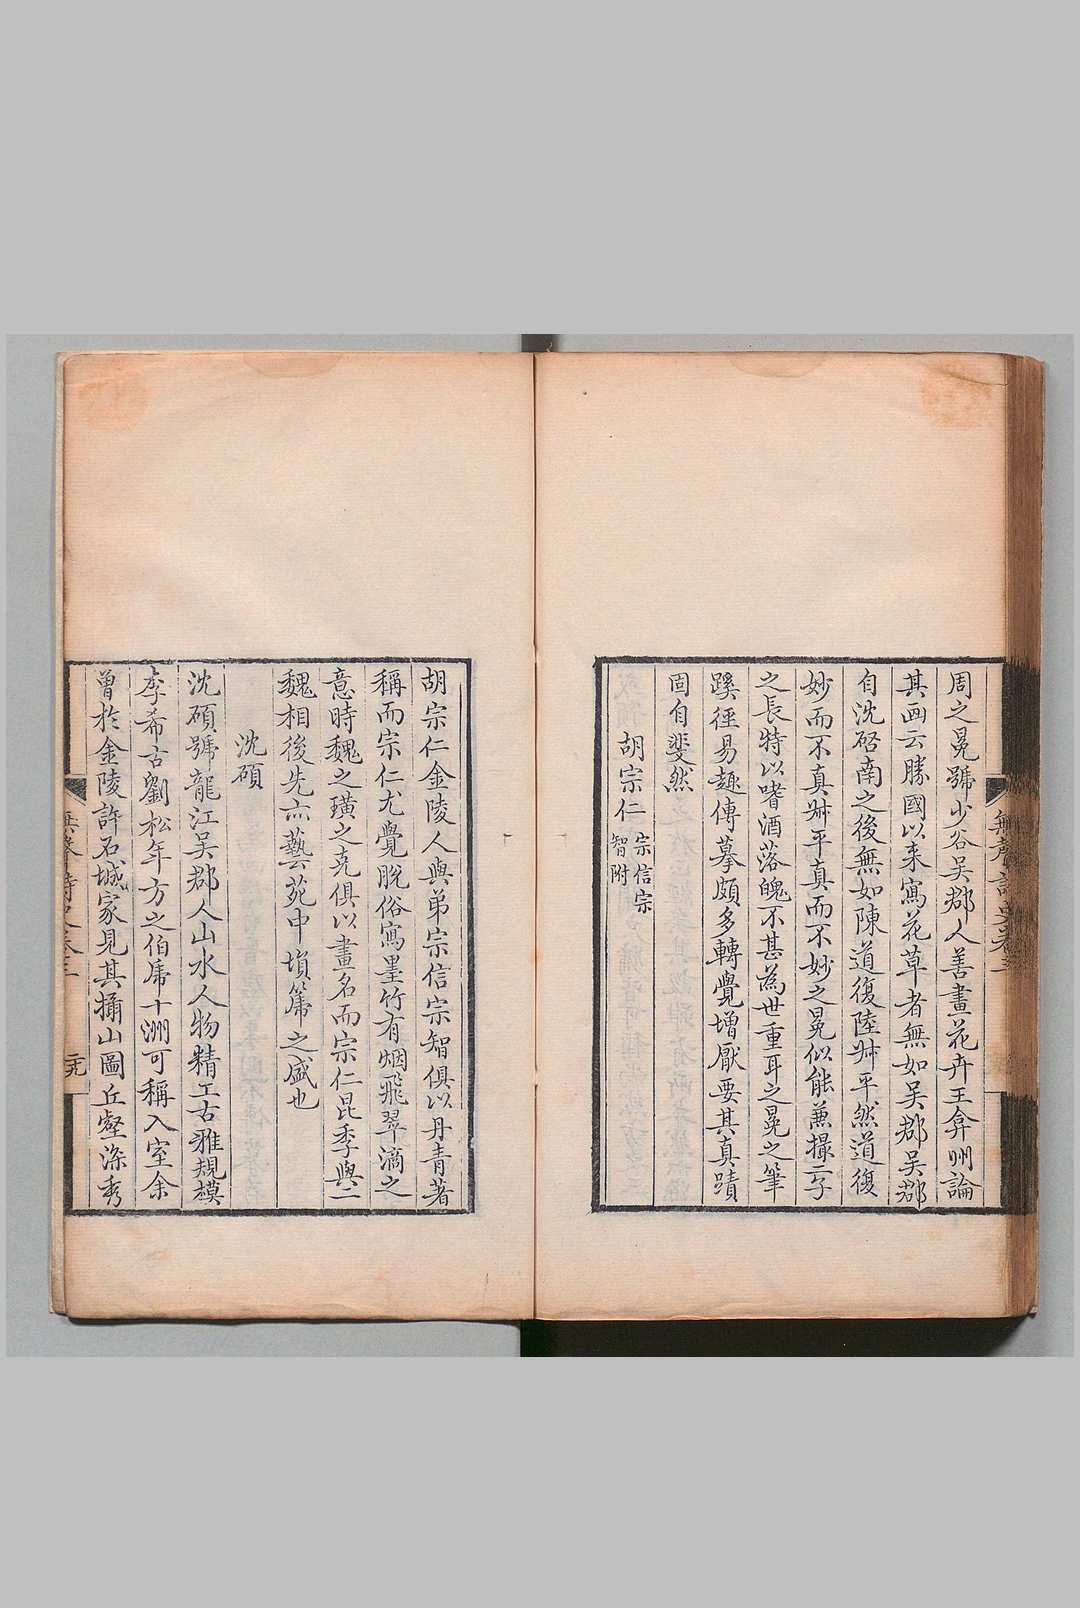 周之冕號少谷吳郡人善畫花卉王弇州論
其画云勝國以来寫花草者無如吳郡吳郡
自沈啓南之後無如陳道復陸叔平然道復
妙而不真叔平真而不妙之冕似能兼撮二子
之長特以嗜酒落魄不甚為世重耳之冕之筆
蹊徑易趣傳摹頗多轉覺增厭要其真蹟
固自斐然
胡宗仁 宗信宗智附
胡宗仁金陵人與弟宗信宗智俱以丹青著
稱而宗仁尤覺脫俗寫墨竹有烟飛翠滴之
意時魏之璜之克俱以畫名而宗仁昆季與二
魏相後先亦藝苑中塤篪之盛也
沈碩
沈碩號龍江吳郡人山水人物精工古雅規模
李希古劉松年方之伯虎十洲可稱入室余
曾於金陵許石城家見其攝山圖丘壑深秀
無聲詩史卷三
二九